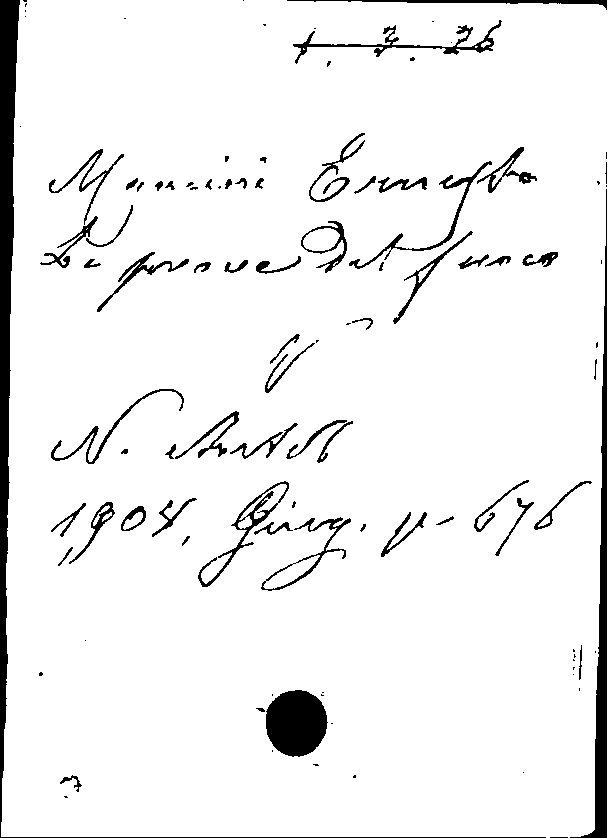 1. 3. 26
Mancini Ernesto
La prova del fuoco
N. Antol
1904, Giug. p. 676